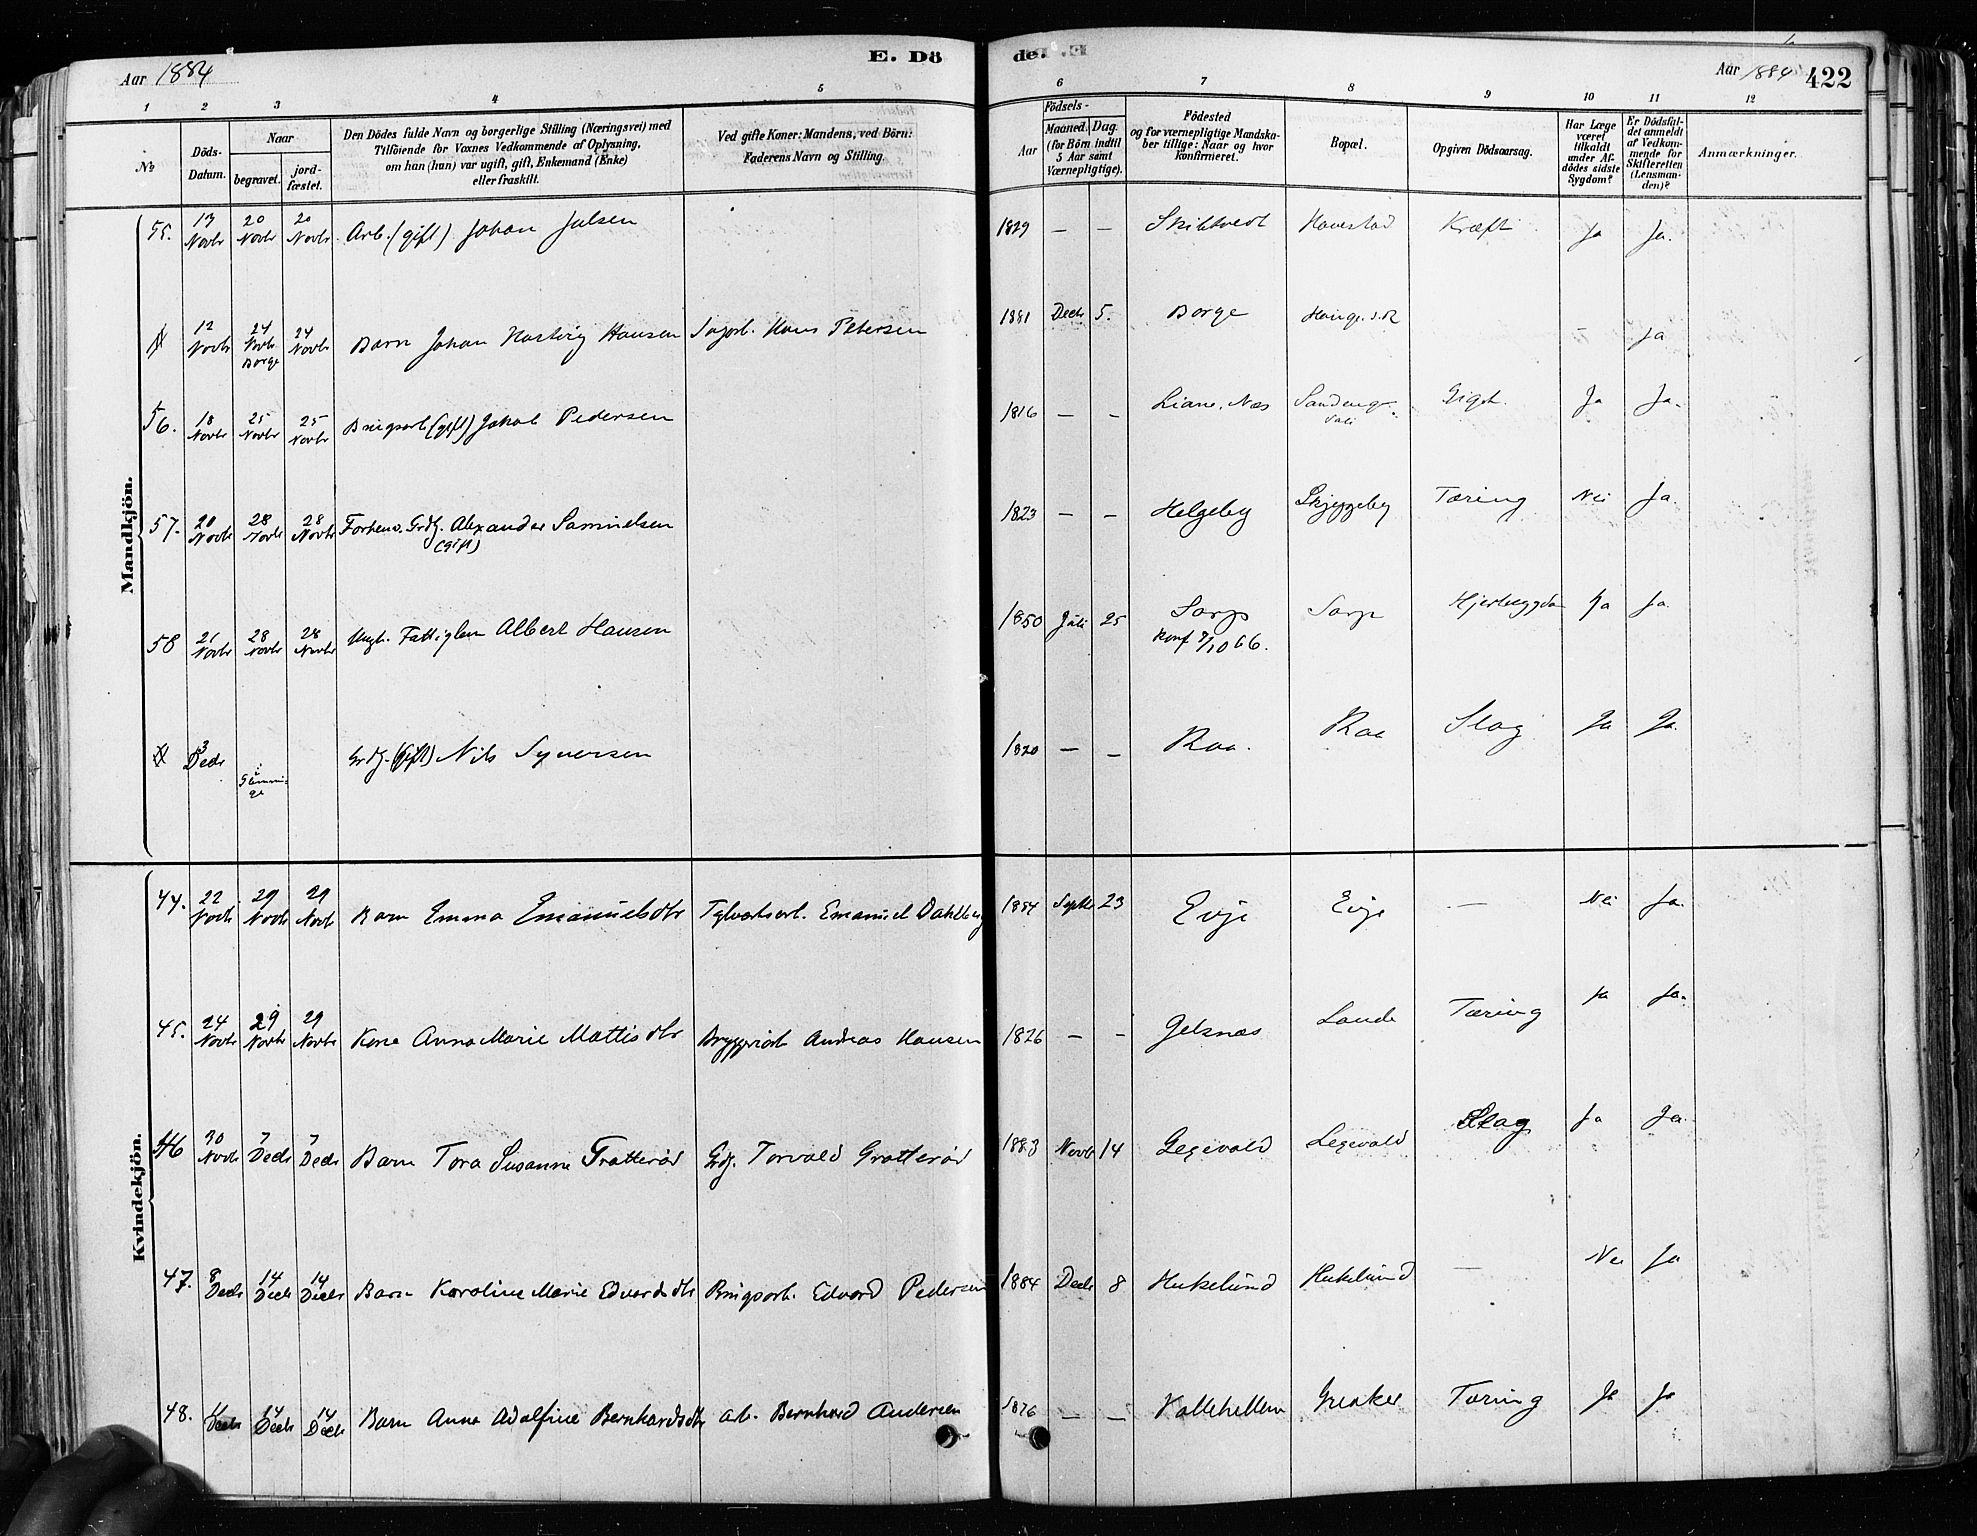 Aar 1884 E. Dö
de. Aar 1884 422
1 2 3 4 5 6 7 8 9 10 11 12
№
Döds-Datum.
Naar
begravet.
jord-fæstet.
Den Dödes fulde Navn og borgerlige Stilling (Næringsvei) med
Tilföiende for Voxnes Vedkommende af Oplysning,
om han (hun) var ugift, gift, Enkemand (Enke)
eller fraskilt.
Ved gifte Koner: Mandens, ved Börn:
Faderens Navn og Stilling.
Födsels-
Aar
Maaned. Dag.
(for Börn indtil
5 Aar samt
Værnepligtige).
Födested
og for værnepligtige Mandska-
ber tillige: Naar og hvor
konfirmeret.
Bopæl.
Opgiven Dödsaarsag.
Har Læge
været
tilkaldt
under Af-
dödes sidste
Sygdom?
Er Dödsfal-
det anmeldt
af Vedkom-
mende for
Skifteretten
(Lensman-
den)?
Anmærkninger.
Mandkjön.
55. 13 Novbr 20 Novbr 20 Novbr Arb. (gift) Johan Julsen 1829 — — Skibtvedt Havestad Kræft Ja Ja.
12 Novbr 24 Novbr Borge 24 Novbr Barn Johan Hansen Hans Petersen 1881 Decb 5. Borge Hauge — Ja
56. 18 Novbr 25 Novbr 25 Novbr (gift) Jakob Pedersen 1816 — — Liane, Næs Gigt. Ja Ja.
57. 20 Novbr 28 Novbr 28 Novbr Forhenv. Grdbr. Alexander Samuelsen (gift) 1823 — — Helgeby Skjeggeby Tæring Nei Ja.
58 21 Novbr 28 Novbr 28 Novbr Ungk. Fattiglem Albert Hansen 1850 Juli 25 Sarp Konf 7/10 66. Sarp Ja Ja.
3 Decbr Grdbr. (gift) Nils Syversen 1820 — — Raa. Raa Slag Ja Ja.
Kvindekjön.
44. 22 Novbr 29 Novbr 29 Novbr Barn Emma Emanuelsdtr Emanuel Dahlberg 1884 Septbr 23 Evje Evje — Nei Ja.
45. 24 Novbr 29 Novbr 29 Novbr Kone Anna Marie Mattisdtr Andreas Hansen 1826 — — Gelsnæs Lande Tæring Ja Ja.
46 30 Novbr 7 Decbr 7 Decbr Barn Tora Susanne Gratterød Grdbr. Torvald Gratterød 1883 Novbr 14 Legevold Legevold Slag Ja Ja.
47. 8 Decbr 14 Decbr 14 Decbr Barn Karoline Marie Edvardsdtr Edvard Pedersen 1884 Decbr 8 Hukelund Hukelund — Nei Ja
48. Decbr 14 Decbr 14 Decbr Barn Anne Adolfine Bernhardsdtr Arb. Bernhard Andersen 1876 — — Kallehellen Greaker Tæring Ja Ja